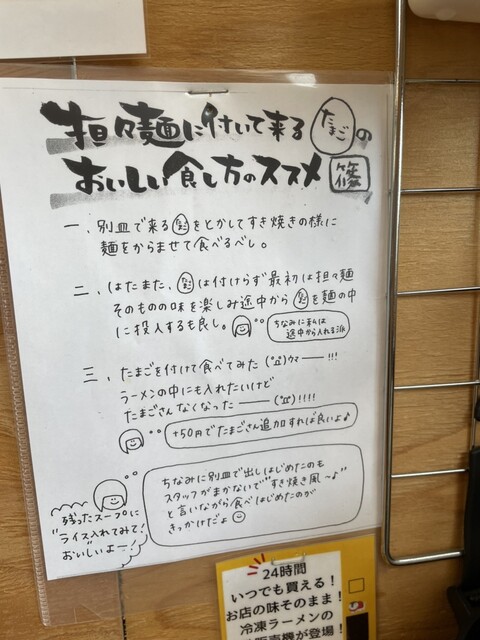 担々麺に付いて来るたまごの
おいしい食し方のススメ 篠
一、別皿で来るたまごをとかしてすき焼きの様に
麺をからませて食べるべし。
二、はたまた、たまごは付けらず最初は担々麺
そのものの味を楽しみ途中からたまごを麺の中
に投入するも良し。
ちなみに私は
途中から入れる派
三、たまごを付けて食べてみた(°Д°)ウマー——!!!
ラーメンの中にも入れたいけど
たまごさんなくなった———(°Д°)!!!!
+50円でたまごさん追加すれば良いよ♪
ちなみに別皿で出しはじめたのも
スタッフがまかないで"すき焼き風〜♪"
と言いながら食べはじめたのが
きっかけだよ
残ったスープに
"ライス"入れてみて!
おいしいよー!
24時間
いつでも買える!
お店の味そのまま!
冷凍ラーメンの
販売機が登場!